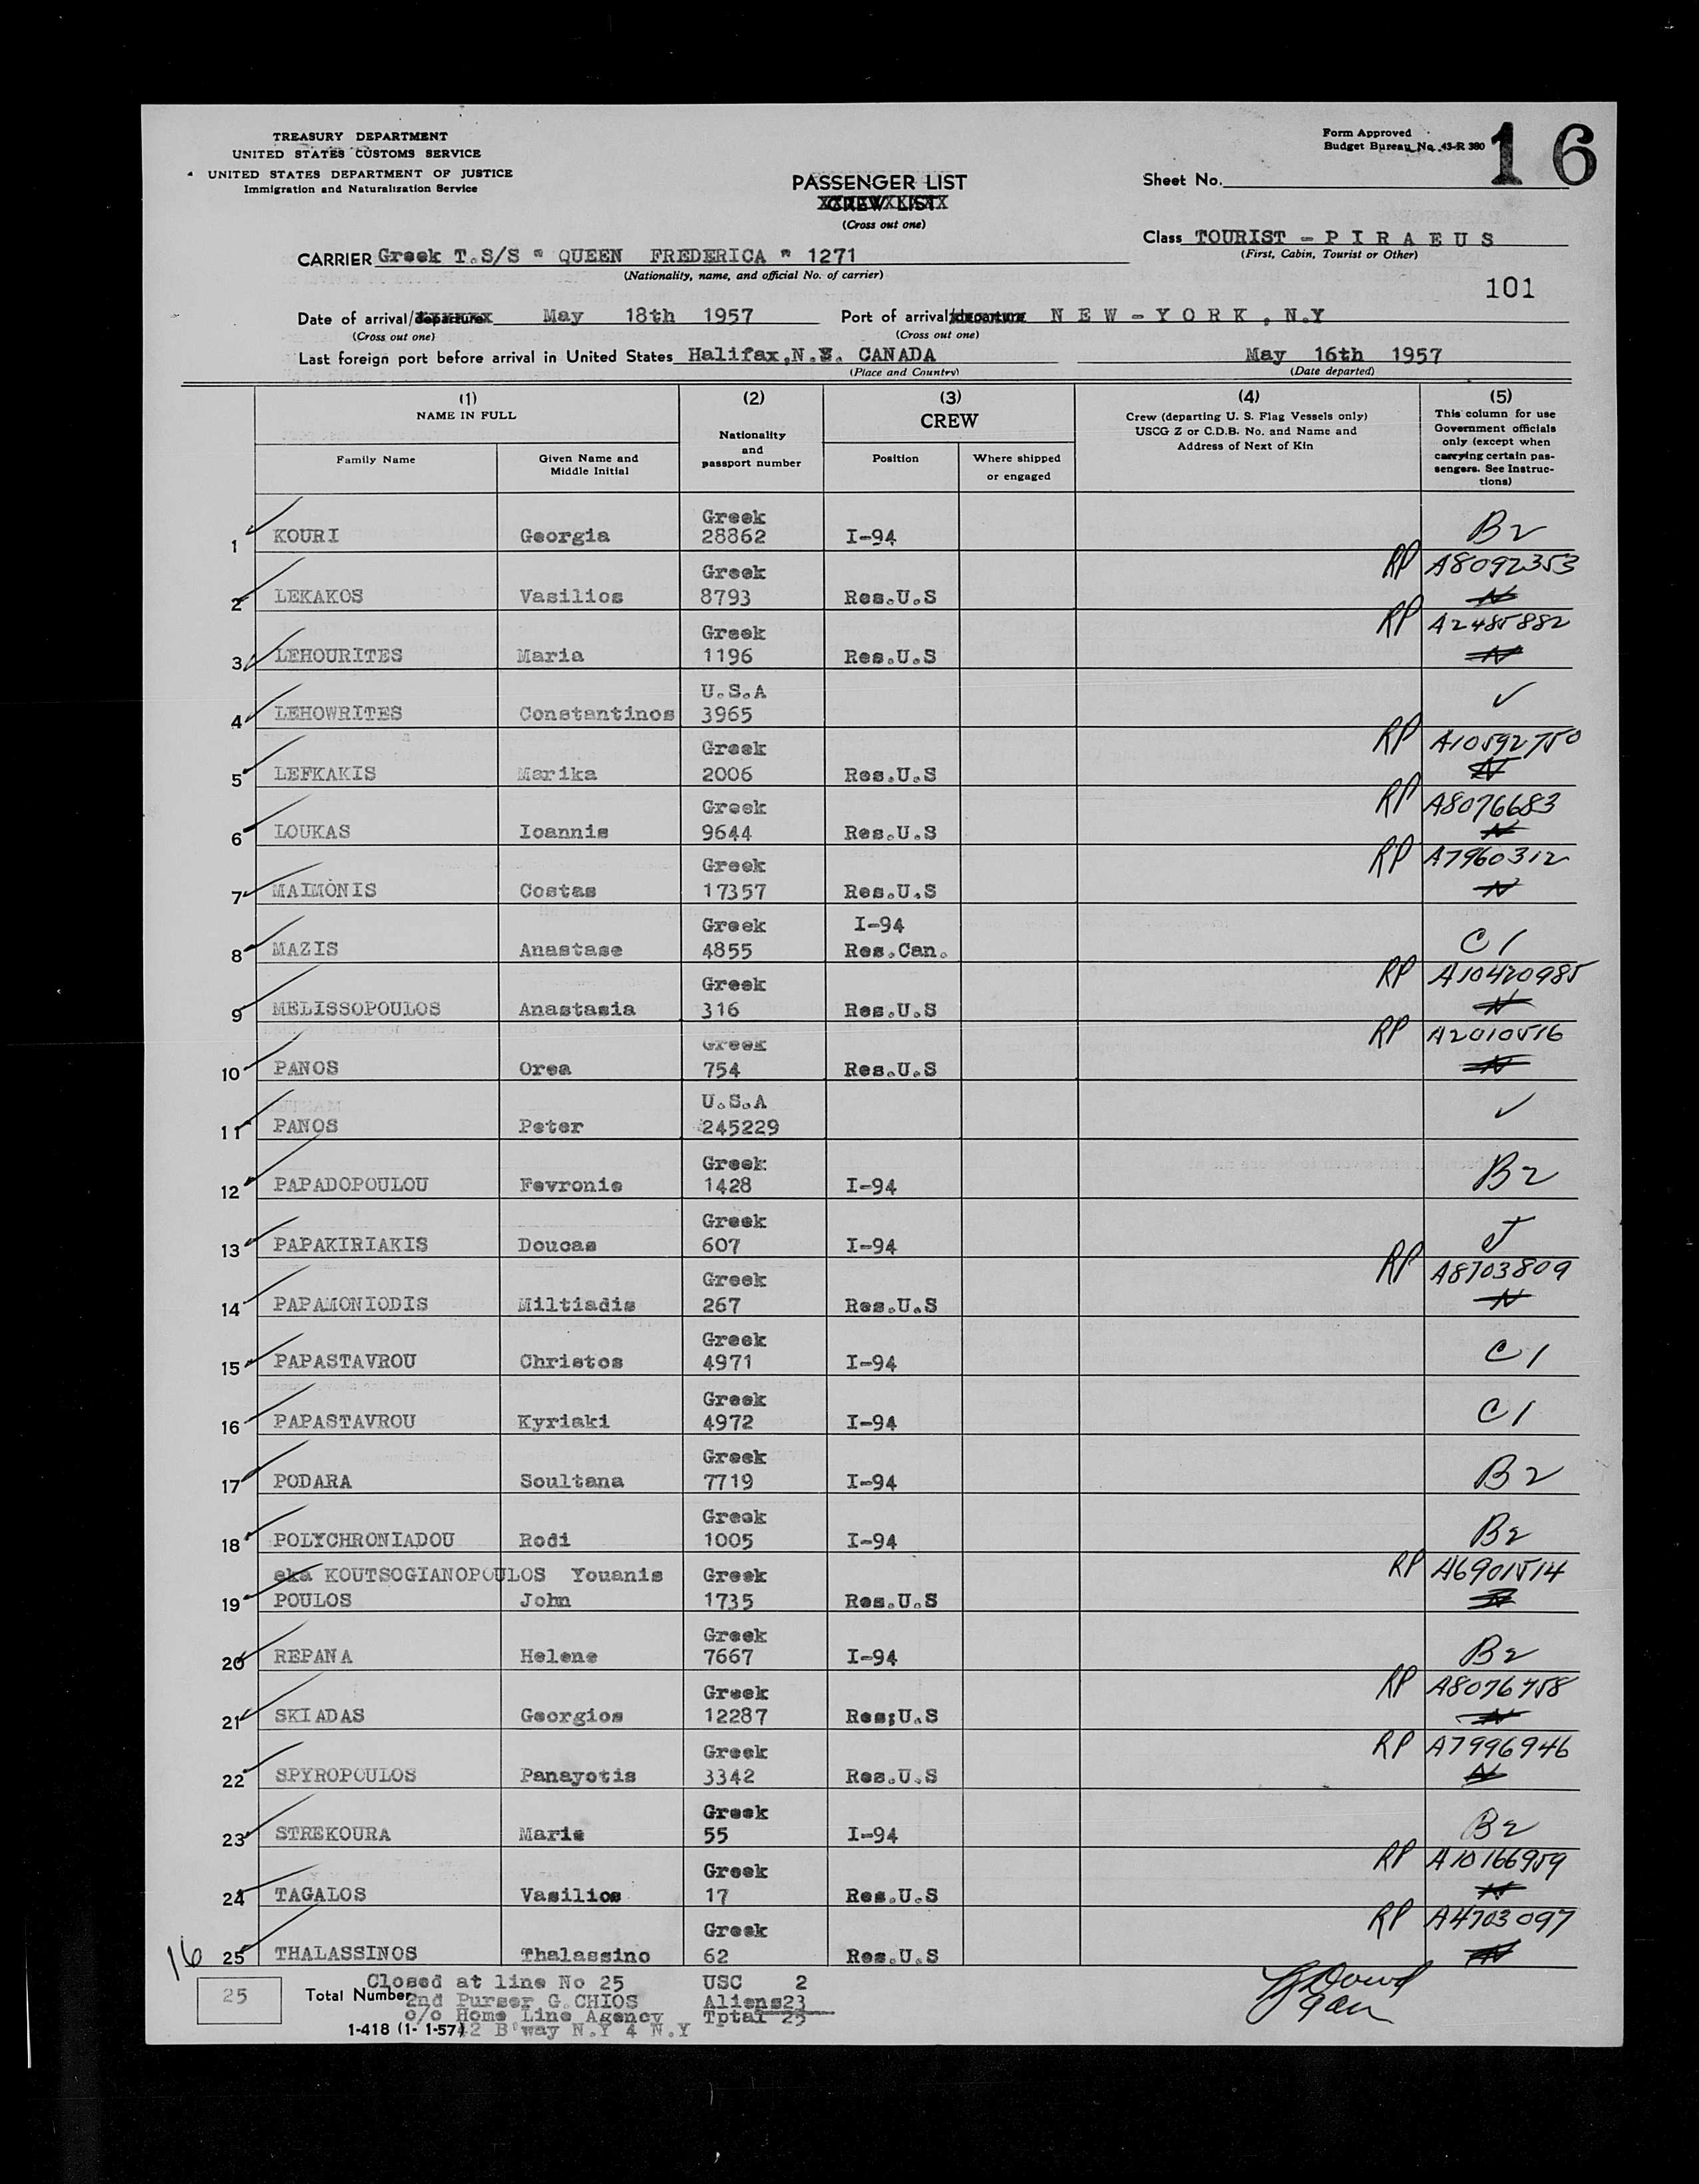 TREASURY DEPARTMENT
UNITED STATES CUSTOMS SERVICE
UNITED STATES DEPARTMENT OF JUSTICE
Immigration and Naturalization Service
Form Approved
Budget Bureau No. 43-R 380
16
PASSENGER LIST
CREW LIST
(Cross out one)
Sheet No.
Class TOURIST - P I R A E U S
(First, Cabin, Tourist or Other)
CARRIER Greek T.S/S " QUEEN FREDERICA " 1271
(Nationality, name, and official No. of carrier)
101
Date of arrival/departure May 18th 1957 Port of arrival/departure N E W - Y O R K , N.Y
(Cross out one) (Cross out one)
Last foreign port before arrival in United States Halifax,N.S. CANADA May 16th 1957
(Place and Country) (Date departed)
(1) (2) (3) (4) (5)
NAME IN FULL
Family Name
Given Name and Middle Initial
Nationality and passport number
CREW
Position
Where shipped or engaged
Crew (departing U. S. Flag Vessels only)
USCG Z or C.D.B. No. and Name and
Address of Next of Kin
This column for use
Government officials
only (except when
carrying certain pas-
sengers. See Instruc-
tions)
Greek
1 KOURI Georgia 28862 I-94 B2
Greek RP A8092353
2 LEKAKOS Vasilios 8793 Res.U.S N
Greek RP A2485882
3 LEHOURITES Maria 1196 Res.U.S N
U.S.A
4 LEHOWRITES Constantinos 3965 ✓
Greek RP A10592750
5 LEFKAKIS Marika 2006 Res.U.S N
Greek RP A8076683
6 LOUKAS Ioannis 9644 Res.U.S N
Greek RP A7960312
7 MAIMONIS Costas 17357 Res.U.S N
Greek I-94
8 MAZIS Anastase 4855 Res.Can. C1
Greek RP A10420985
9 MELISSOPOULOS Anastasia 316 Res.U.S N
Greek RP A2010516
10 PANOS Orea 754 Res.U.S N
U.S.A
11 PANOS Peter 245229 ✓
Greek
12 PAPADOPOULOU Fevronie 1428 I-94 B2
Greek
13 PAPAKIRIAKIS Doucas 607 I-94 J
Greek RP A8703809
14 PAPAMONIODIS Miltiadis 267 Res.U.S N
Greek
15 PAPASTAVROU Christos 4971 I-94 C1
Greek
16 PAPASTAVROU Kyriaki 4972 I-94 C1
Greek
17 PODARA Soultana 7719 I-94 B2
Greek
18 POLYCHRONIADOU Rodi 1005 I-94 B2
aka KOUTSOGIANOPOULOS Youanis Greek RP A6901514
19 POULOS John 1735 Res.U.S N
Greek
20 REPANA Helene 7667 I-94 B2
Greek RP A8076758
21 SKIADAS Georgios 12287 Res;U.S N
Greek RP A7996946
22 SPYROPOULOS Panayotis 3342 Res.U.S N
Greek
23 STREKOURA Marie 55 I-94 B2
Greek RP A10166959
24 TAGALOS Vasilios 17 Res.U.S N
Greek RP A4703097
16 25 THALASSINOS Thalassino 62 Res.U.S N
Closed at line No 25 USC 2
25 Total Number 2nd Purser G.CHIOS Aliens23
c/o Home Line Agency Tptal 25
I-418 (1- 1-57) 42 B'way N.Y 4 N.Y